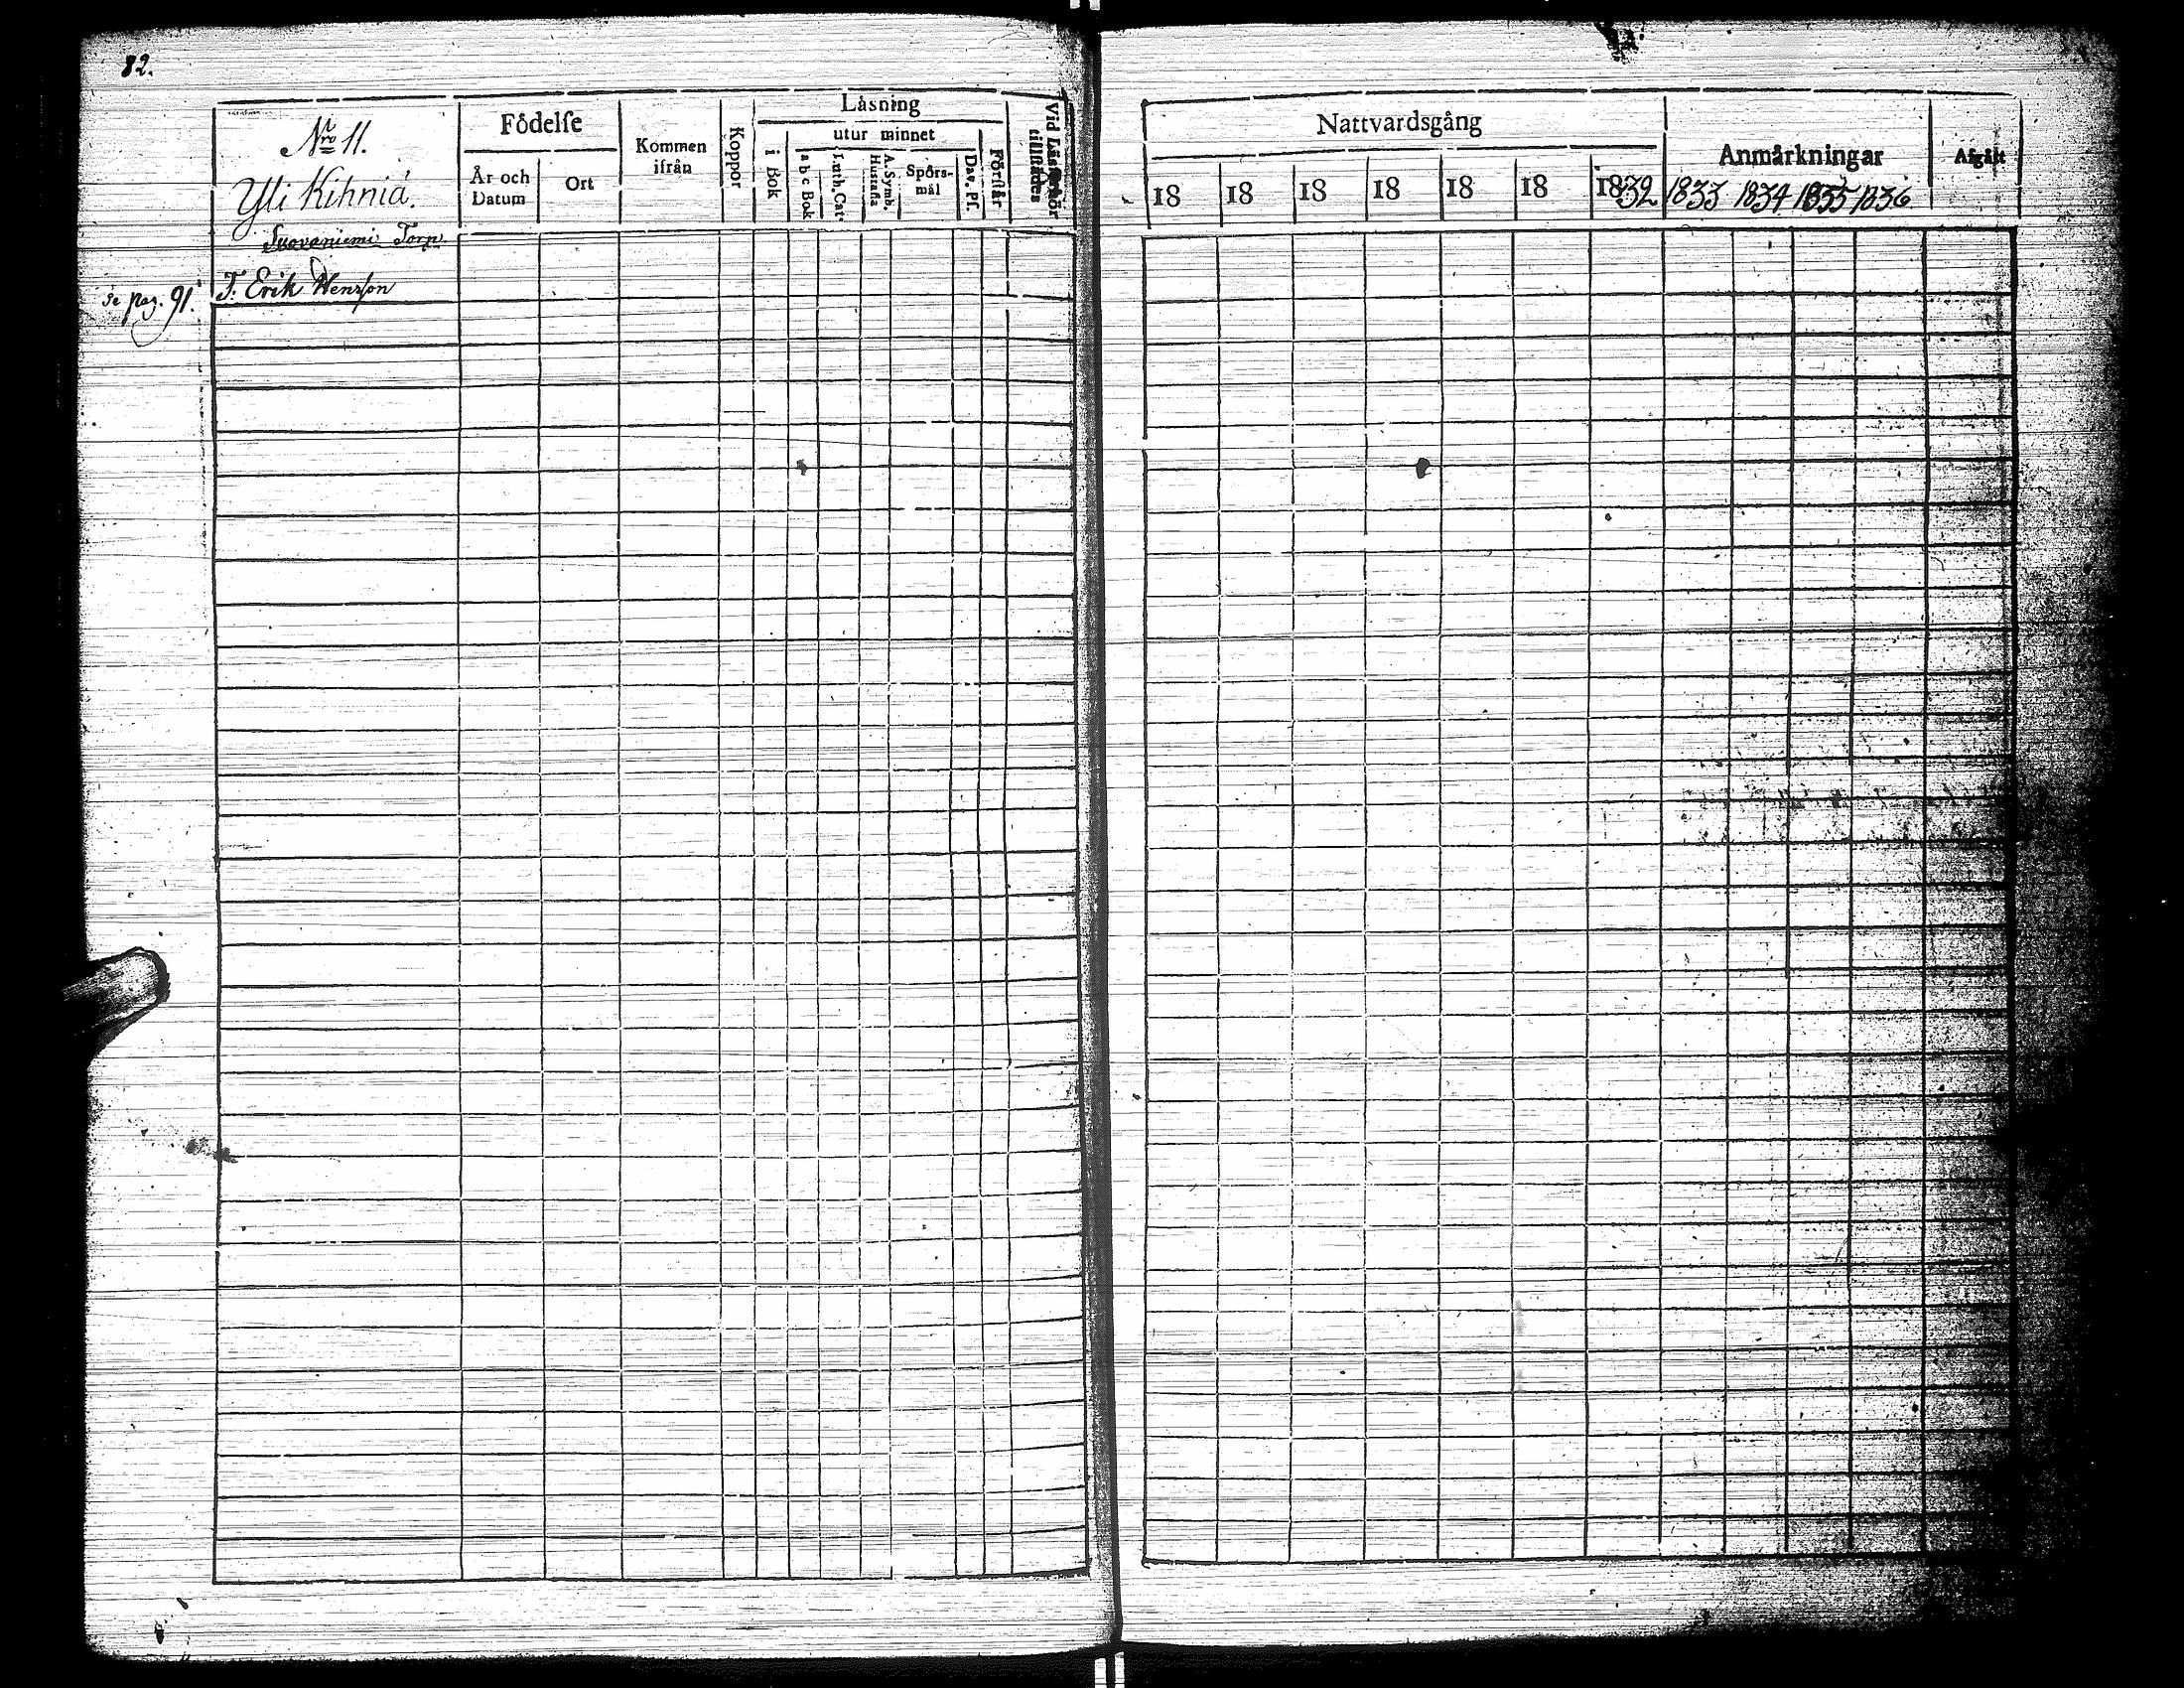 82.
Nro 11.
Yli Kihniä.
Suovaniemi Torp.
Se pag. 91. T. Erik Henrsson
Födelse
År och Datum
Ort
Kommen ifrån
Koppor
Läsning
utur minnet
i Bok
a b c Bok
Luth. Cat.
A. Symb. Hustafla
Spörs-
mål
Dav. Ps.
Förstår
Vid Läsförhör
tillstädes
Nattvardsgång
18 18 18 18 18 18 1832
Anmärkningar
1833 1834 1835 1836
Afgått